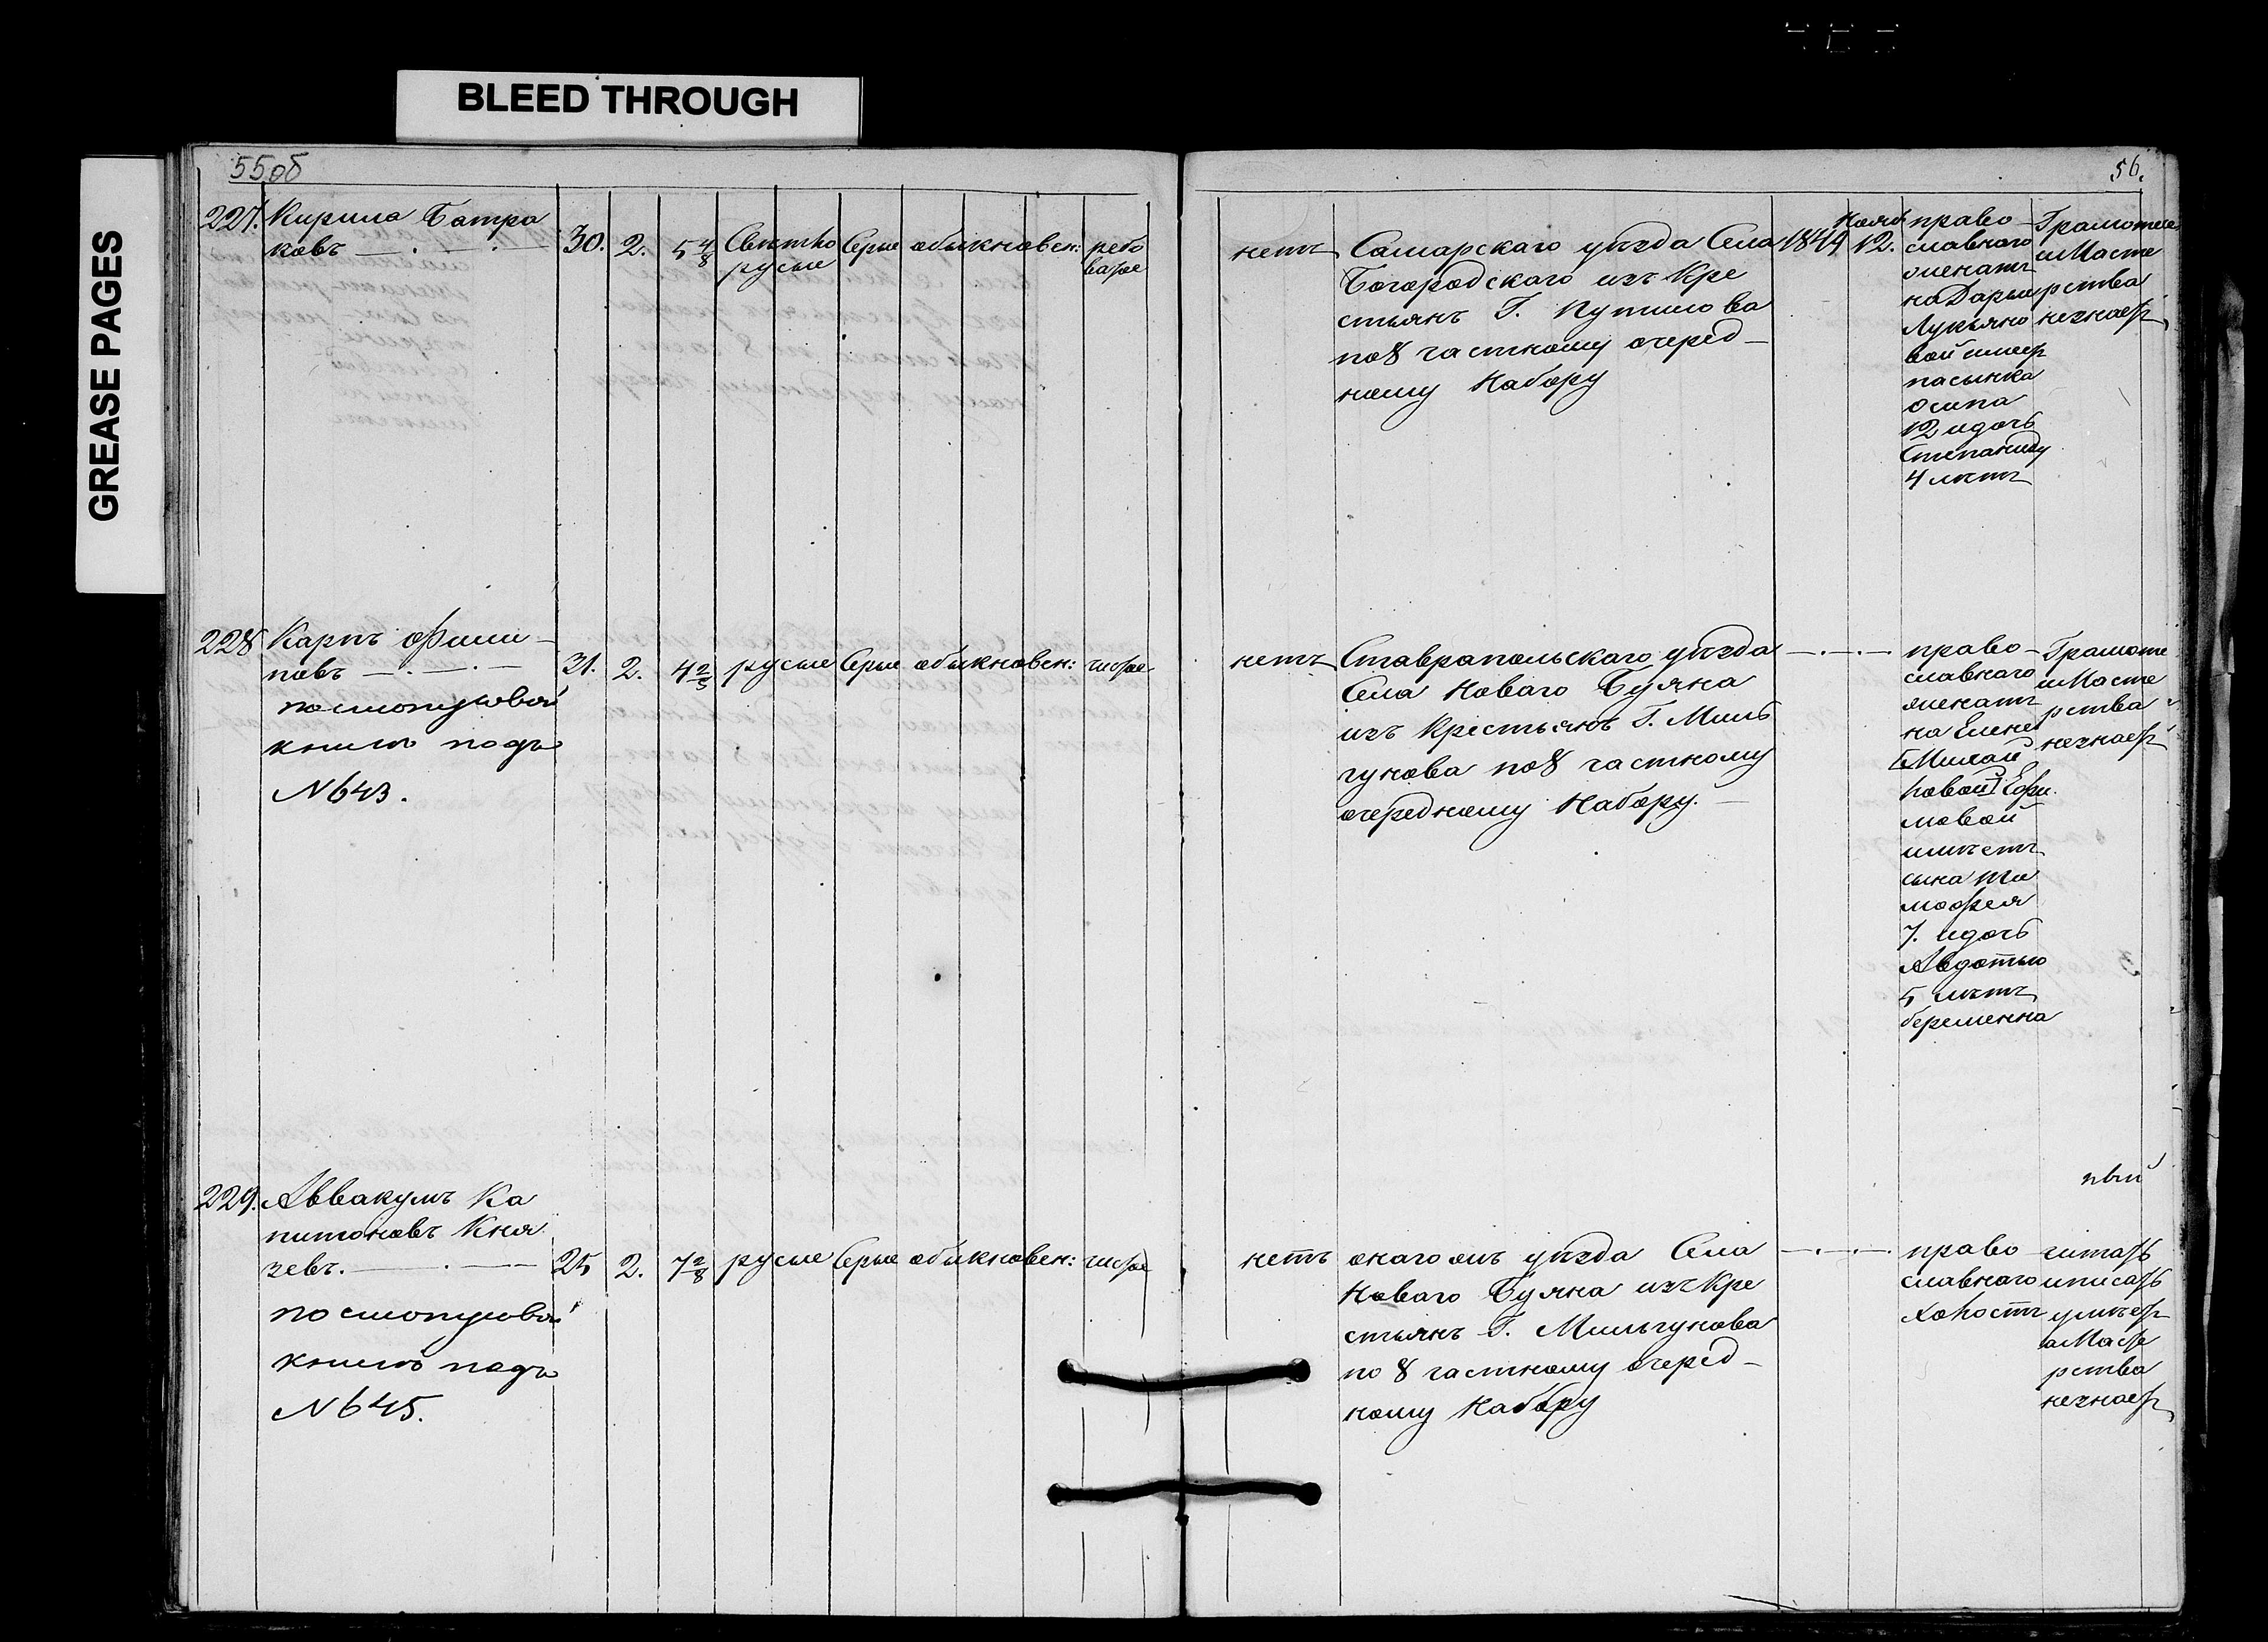 BLEED THROUGH
GREASE PAGES
55об
56.
227. Кирила Батра
ковъ
30. 2. 5 4/8 Светло русые Серые обыкновен: рябо ватое
нетъ
Самарскаго уѣзда Села
Богородскаго изъ Кре
стьянъ Г. Путилова
по 8 частному очеред-
ному Набору
1849 Нояб. 12.
право-
славнаго
женатъ
на Дарьи
Лукьяно
вой имеет
пасынка
Осипа
12 идочь
Степаниду
4 летъ
Грамоте
и Масте
рства
незнает
228 Карпъ Филип-
повъ
31. 2. 4 2/8 русые Серые обыкновен: чистое
по смотровой
книге подъ
№ 643.
нетъ
Ставропольскаго уѣзда
Села Новаго Буяна
изъ Крестьянъ Г. Миль
гунова по 8 частному
очередному Набору.
право-
славнаго
женатъ
на Елене
[Михай
ловой] Ефи
мовой
имѣетъ
сына Ти
мофея
7. идочь
Авдотью
5 летъ
беременна
Грамоте
и Масте
рства
незнает
229. Аввакумъ Ка
питоновъ Кня
зевъ.
25 2. 7 2/8 русые Серые обыкновен: чистое
по смотровой
книге подъ
№ 645.
нетъ
онагожъ уѣзда Села
Новаго Буяна изъ Кре
стьянъ Г. Мильгунова
по 8 частному очеред-
ному Набору
право
славнаго
холостъ
читать
иписать
умѣет
а Масте
рства
незнает